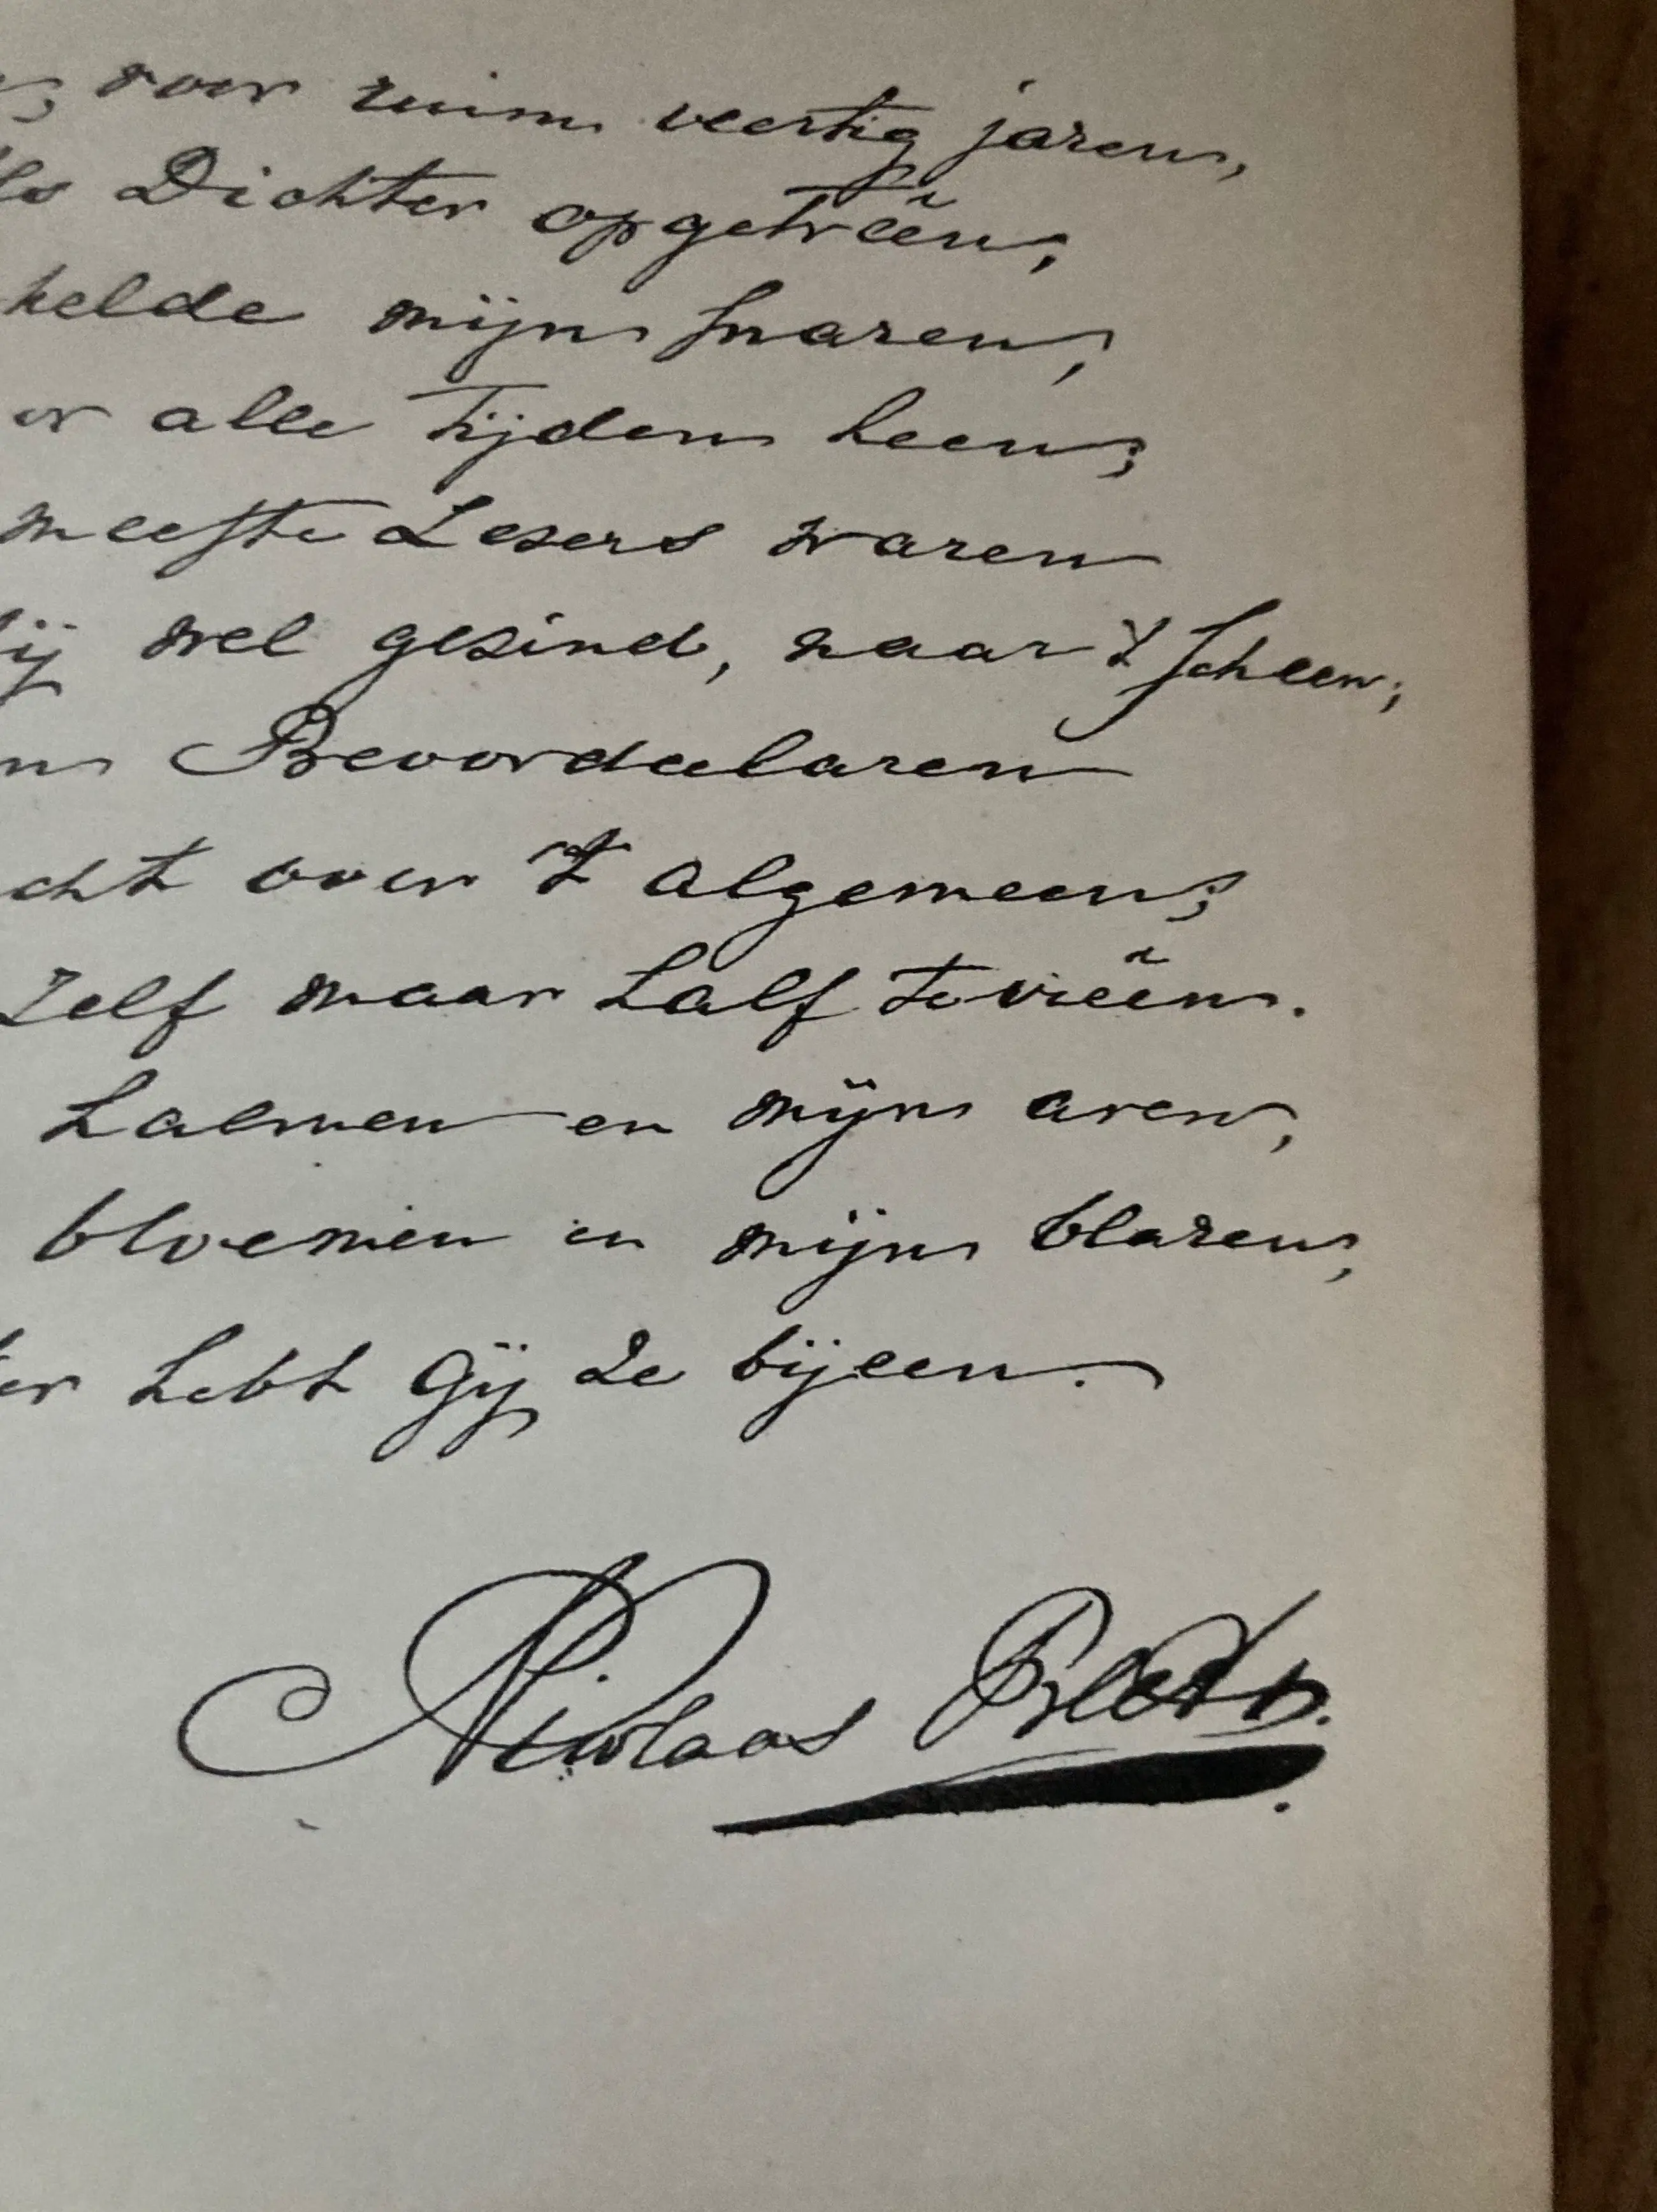 voor ruim veertig jaren,
Dichter opgetreên,
helde mijn snaren,
or alle tijden heen;
meeste Lezers waren
ij wel gezind, naar 't scheen;
n Beoordeelaren
cht over 't algemeen;
Zelf maar half tevreên.
halmen en mijn aren,
bloemen en mijn blaren,
er hebt Gij ze bijeen.
Nicolaas Beets.